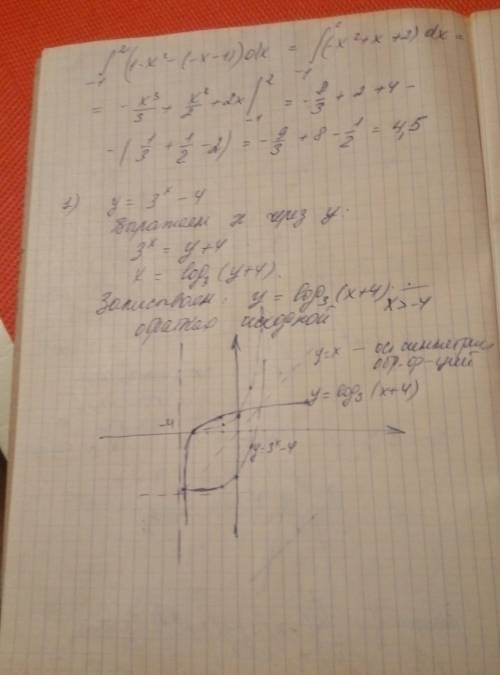 ∫₋₁² (1-x²-(-x-1))dx = ∫₋₁² (-x²+x+2)dx =
= -x³/3 + x²/2 + 2x |₋₁² = -8/3 + 2 + 4 -
-(1/3 + 1/2 - 2) = -9/3 + 8 - 1/2 = 4,5
y = 3ˣ - 4
Выражаем x через y:
3ˣ = y+4
x = log₃(y+4).
Записываем: y = log₃(x+4)
x>-4
обратно исходной
y=x - ось симметрии
обр. ф-ций
y=log₃(x+4)
-4
y=3ˣ-4